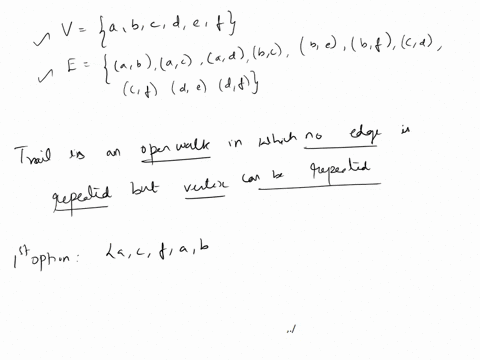 V = {a, b, c, d, e, f}
E = {(a,b), (a,c), (a,d), (b,c), (b,e), (b,f), (c,d),
(c,f) (d,e) (d,f)}
Trail is an open walk in which no edge is
repeated but vertex can be repeated
1st option: <a, c, f, a, b